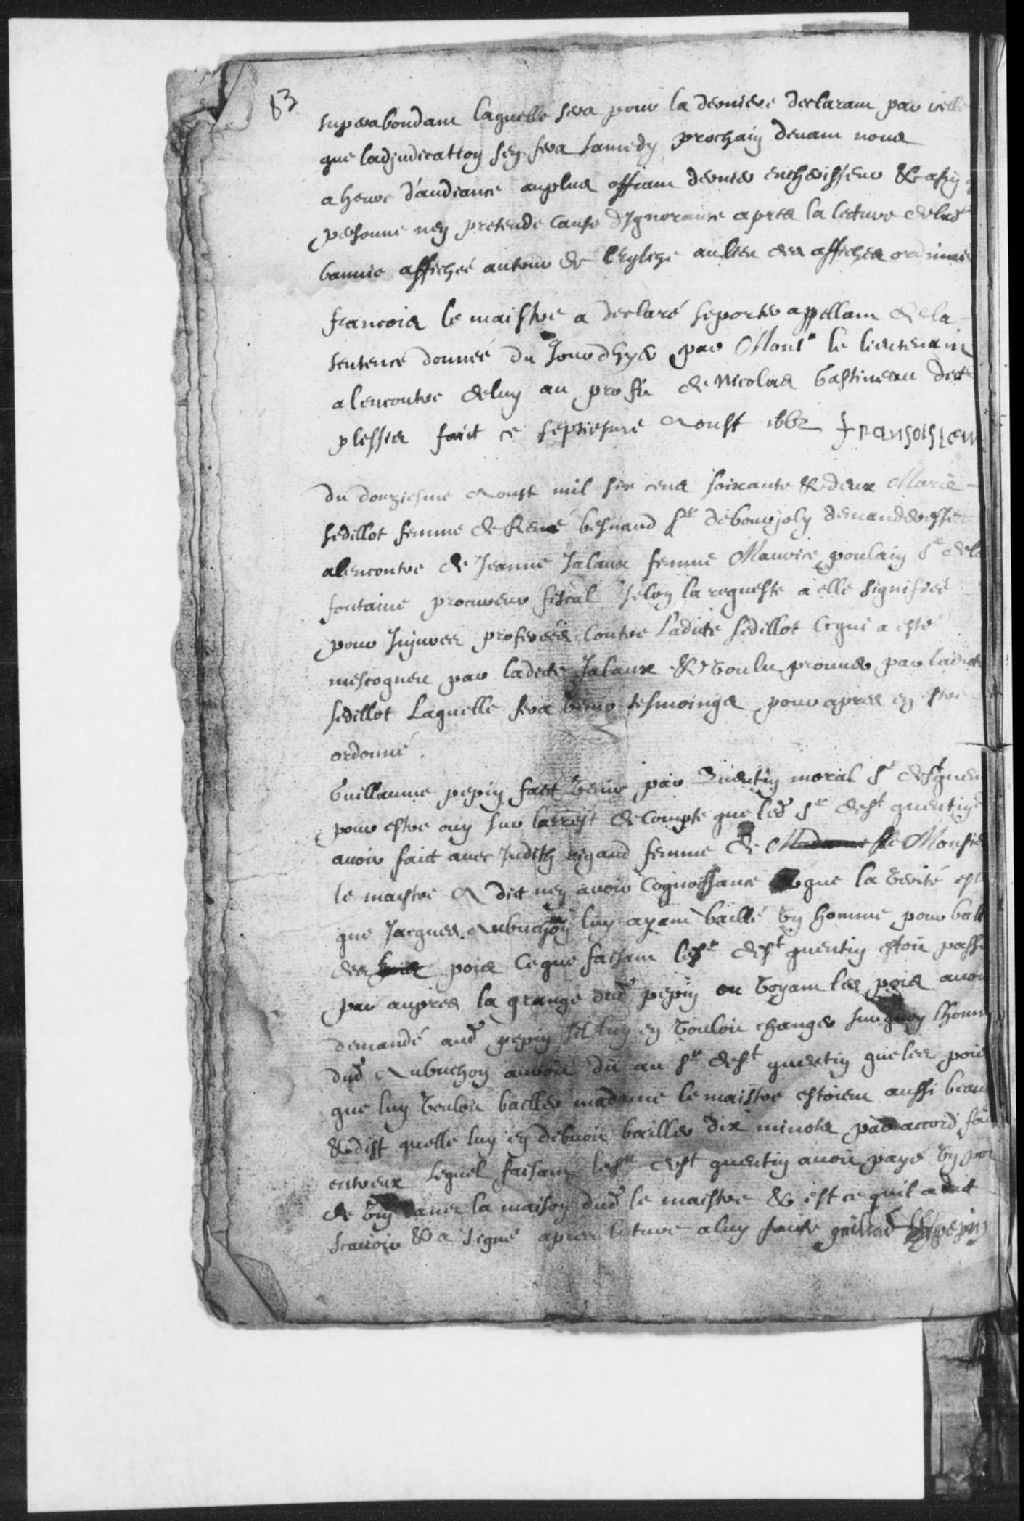 83
superabondam laquelle sera pour la derniere declaram par icelle
que ladjudication sen fera samedy prochain devam nous
a heure d'audiance au plus offram dernier encherisseur & afin
personne nen pretende cause dignorance apres la lecture de lad
bannie affichée autour de leglize au lieu des affiches ordinaires
francois le maistre a declaré se porter appellam de la
sentence donnée du jourdhyer par Monsr le lieutenam
a lencontre de luy au profit de Nicolas Gastineau dict
plessis faict ce septiesme Aoust 1662 fransois Lem
du douziesme Aoust mil six cens soixante & deux Marie
sedillot femme de René besnard sr de bourjoly demanderesse
alencontre de Jeanne Jalaux femme Maurice poulain sr de la
fontaine procureur fiscal selon la requeste a elle signifiée
pour Injures proferées contre Ladite sedillot Ce qui a esté
mescogneu par ladite Jalaux & voulu prouver par ladite
sedillot Laquelle fera venir tesmoings pour apres en estre
ordonné.
Guillaume pepin faict venir par Quentin moral sr de st quentin
pour estre ouy sur larrest de compte que led sr de st quentin
avoir faict avec Judith rigaud femme de Madame le Monsieur
le maistre A dict nen avoir cognoissance que la verité est
que Jacques Aubuchon luy ayam baillé un homme pour batt
des pois Ce que faisam le sr de st quentin estoit passé
par aupres la grange dud pepin voyam les pois avoit
demandé aud pepin sil luy en vouloit changer surquoy lhomme
dud Aubuchon auroit dit au sr de st quentin que les pois
que luy vouloit bailler madame le maistre estoient aussi beaux
& dist quelle luy en debvoit bailler dix minots par accord fait
entreux Lequel faisam le sr de st quentin avoit payé un pot
de vin avec la maison dud le maistre & est ce quil a dict
scavoir & a signé apres lecture a luy faicte guillaume pepin